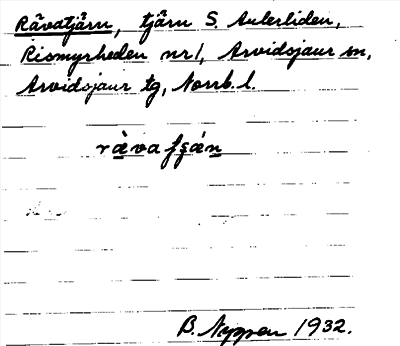 Råvatjärn, tjärn S. Aulerliden,
Rismyrheden nr 1, Arvidsjaur sn,
Arvidsjaur tg, Norrb. l.
B. Nyppen 1932.